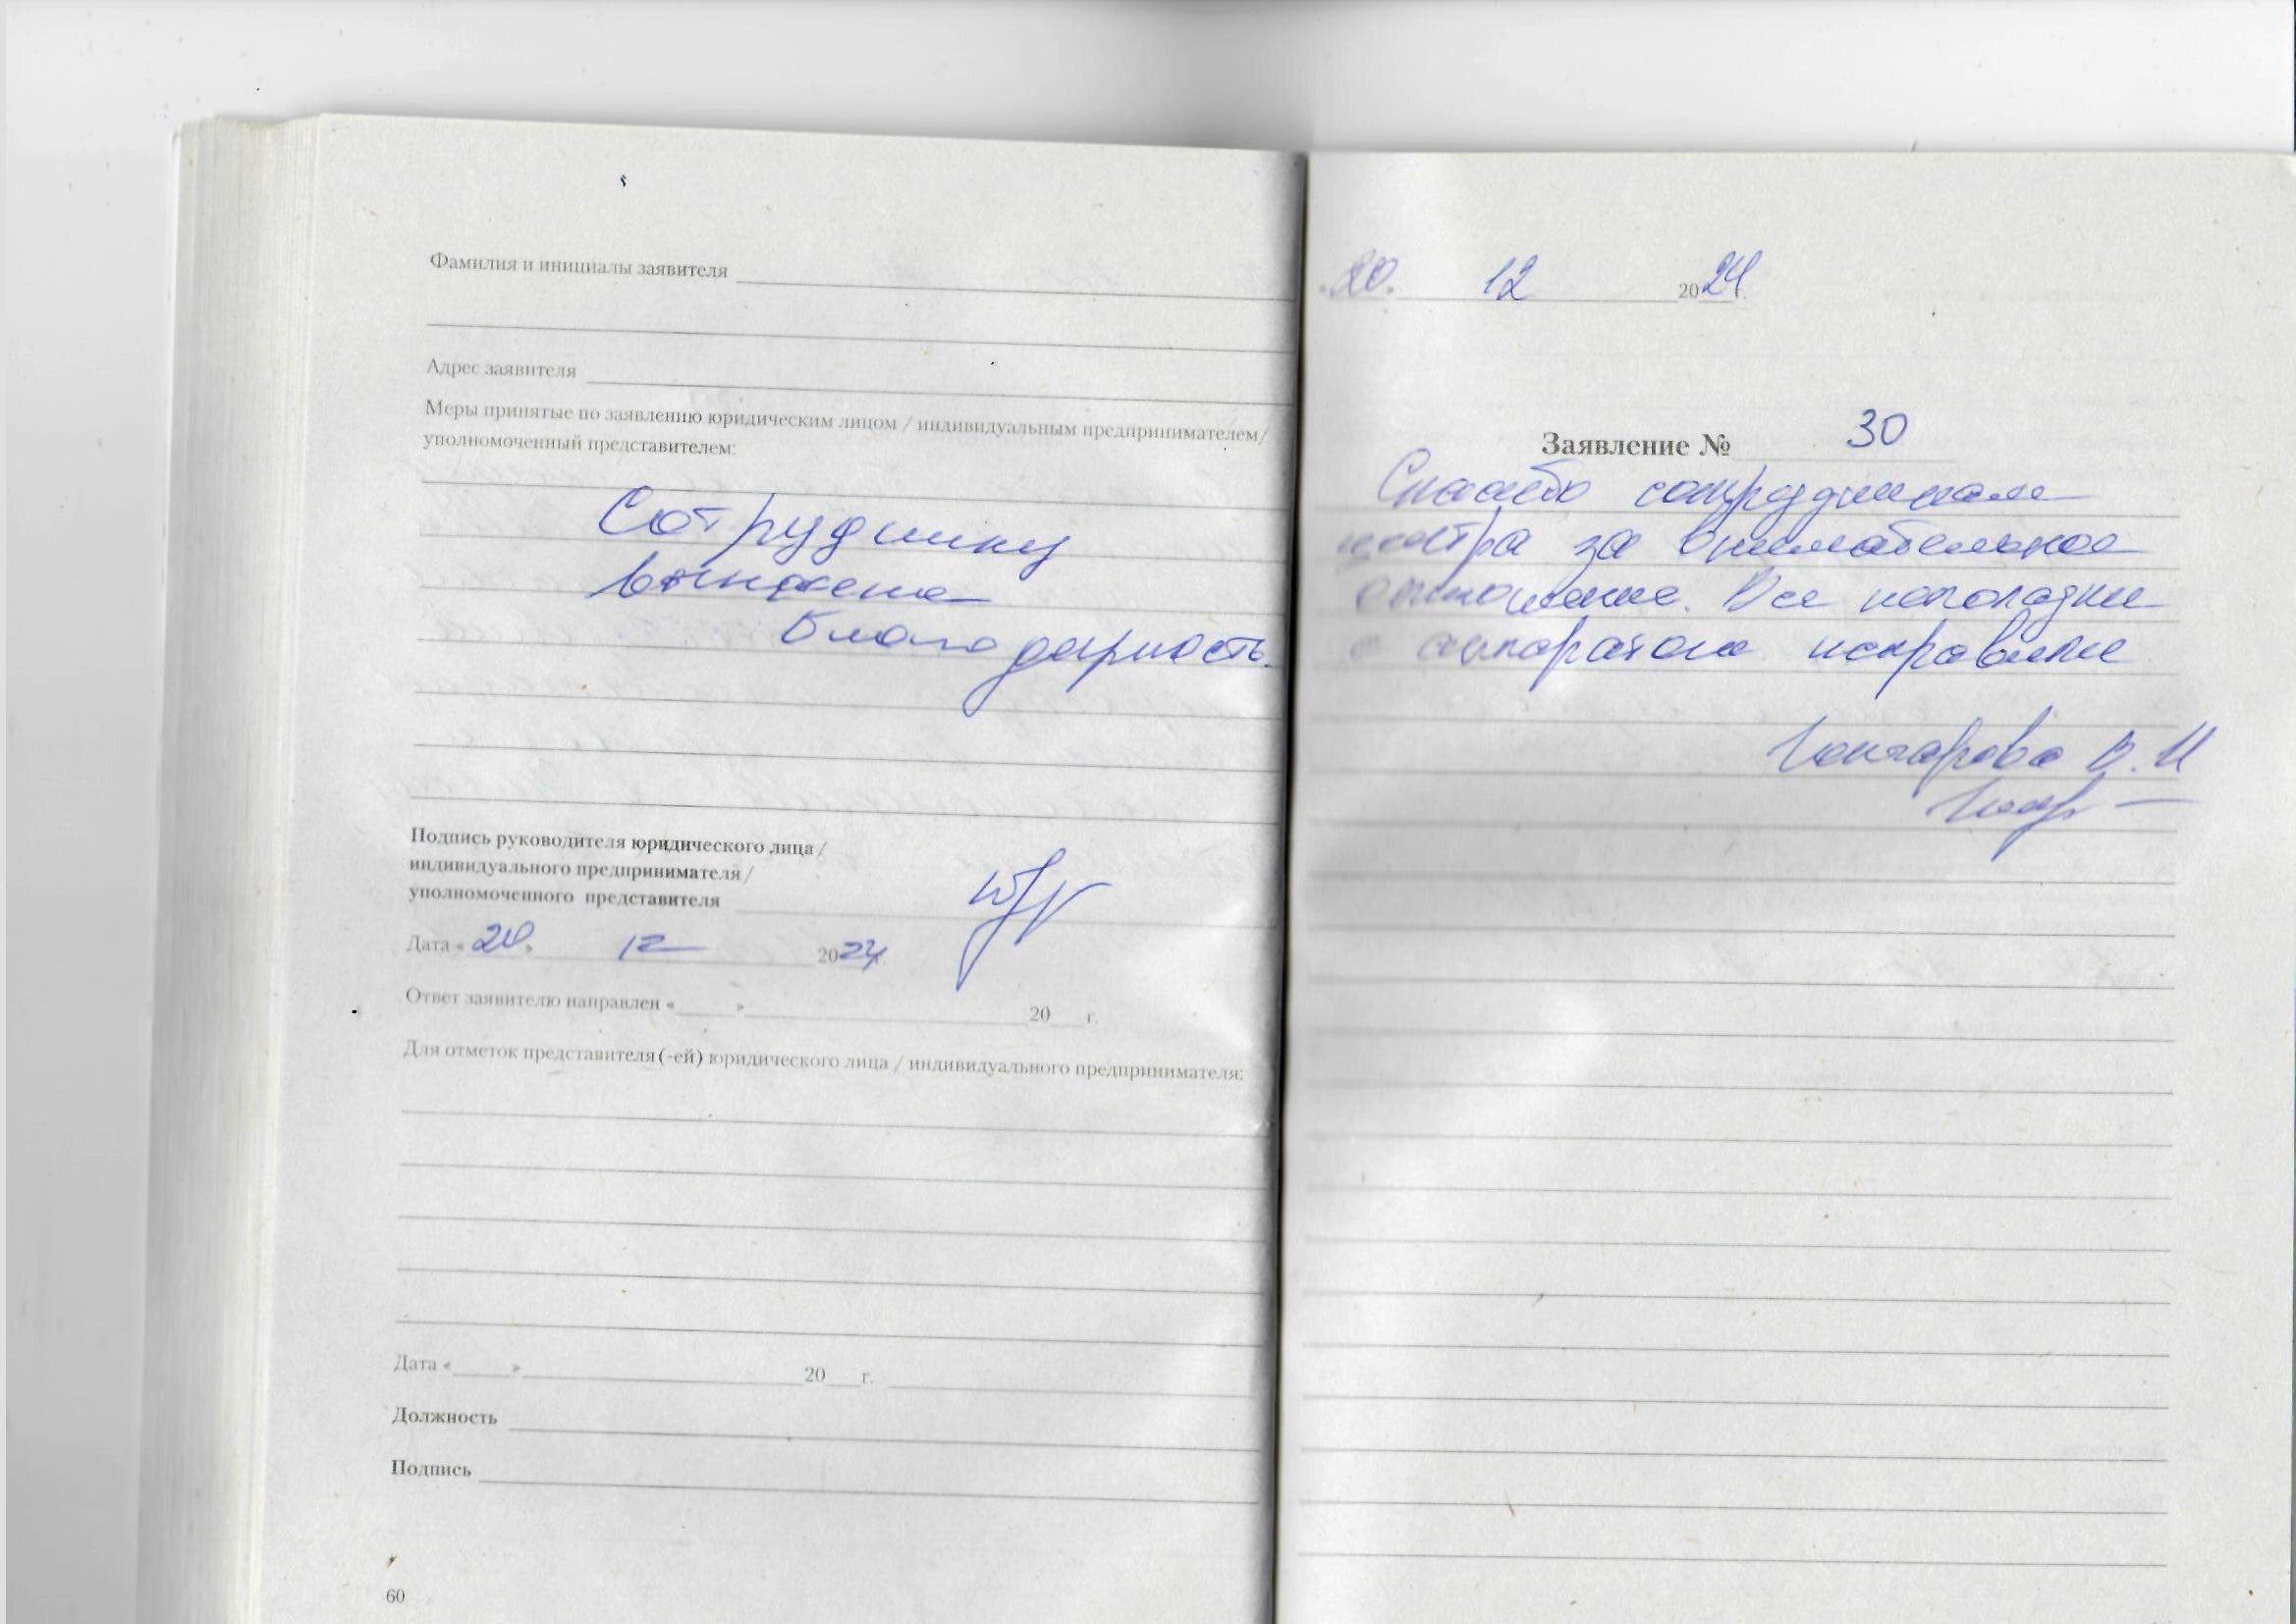 Фамилия и инициалы заявителя
Адрес заявителя
Меры принятые по заявлению юридическим лицом / индивидуальным предпринимателем/
уполномоченный представителем:
Сотруднику
вынесена
благодарность.
Подпись руководителя юридического лица /
индивидуального предпринимателя /
уполномоченного представителя
Дата « 20 » 12 2024
Ответ заявителю направлен « » 20 г.
Для отметок представителя(-ей) юридического лица / индивидуального предпринимателя:
Дата « » 20 г.
Должность
Подпись
60
« 20 » 12 2024 г.
Заявление № 30
Спасибо сотрудникам
центра за внимательное
отношение. Все неполадки
с аппаратом исправили
Гончарова В.И